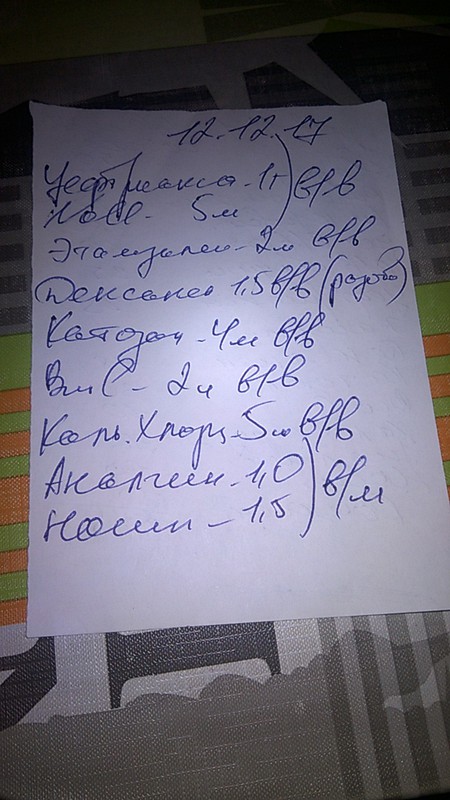 12.12.17
Цефтриакс - 1г ) в/в
NaCl - 5 м
Этамзилат - 2м в/в
Дексамет 1,5 в/в (разово)
Катозал - 4м в/в
Вит С - 2м в/в
Каль. Хлорид - 5м в/в
Анальгин - 1,0 ) в/м
Ношпы - 1,5